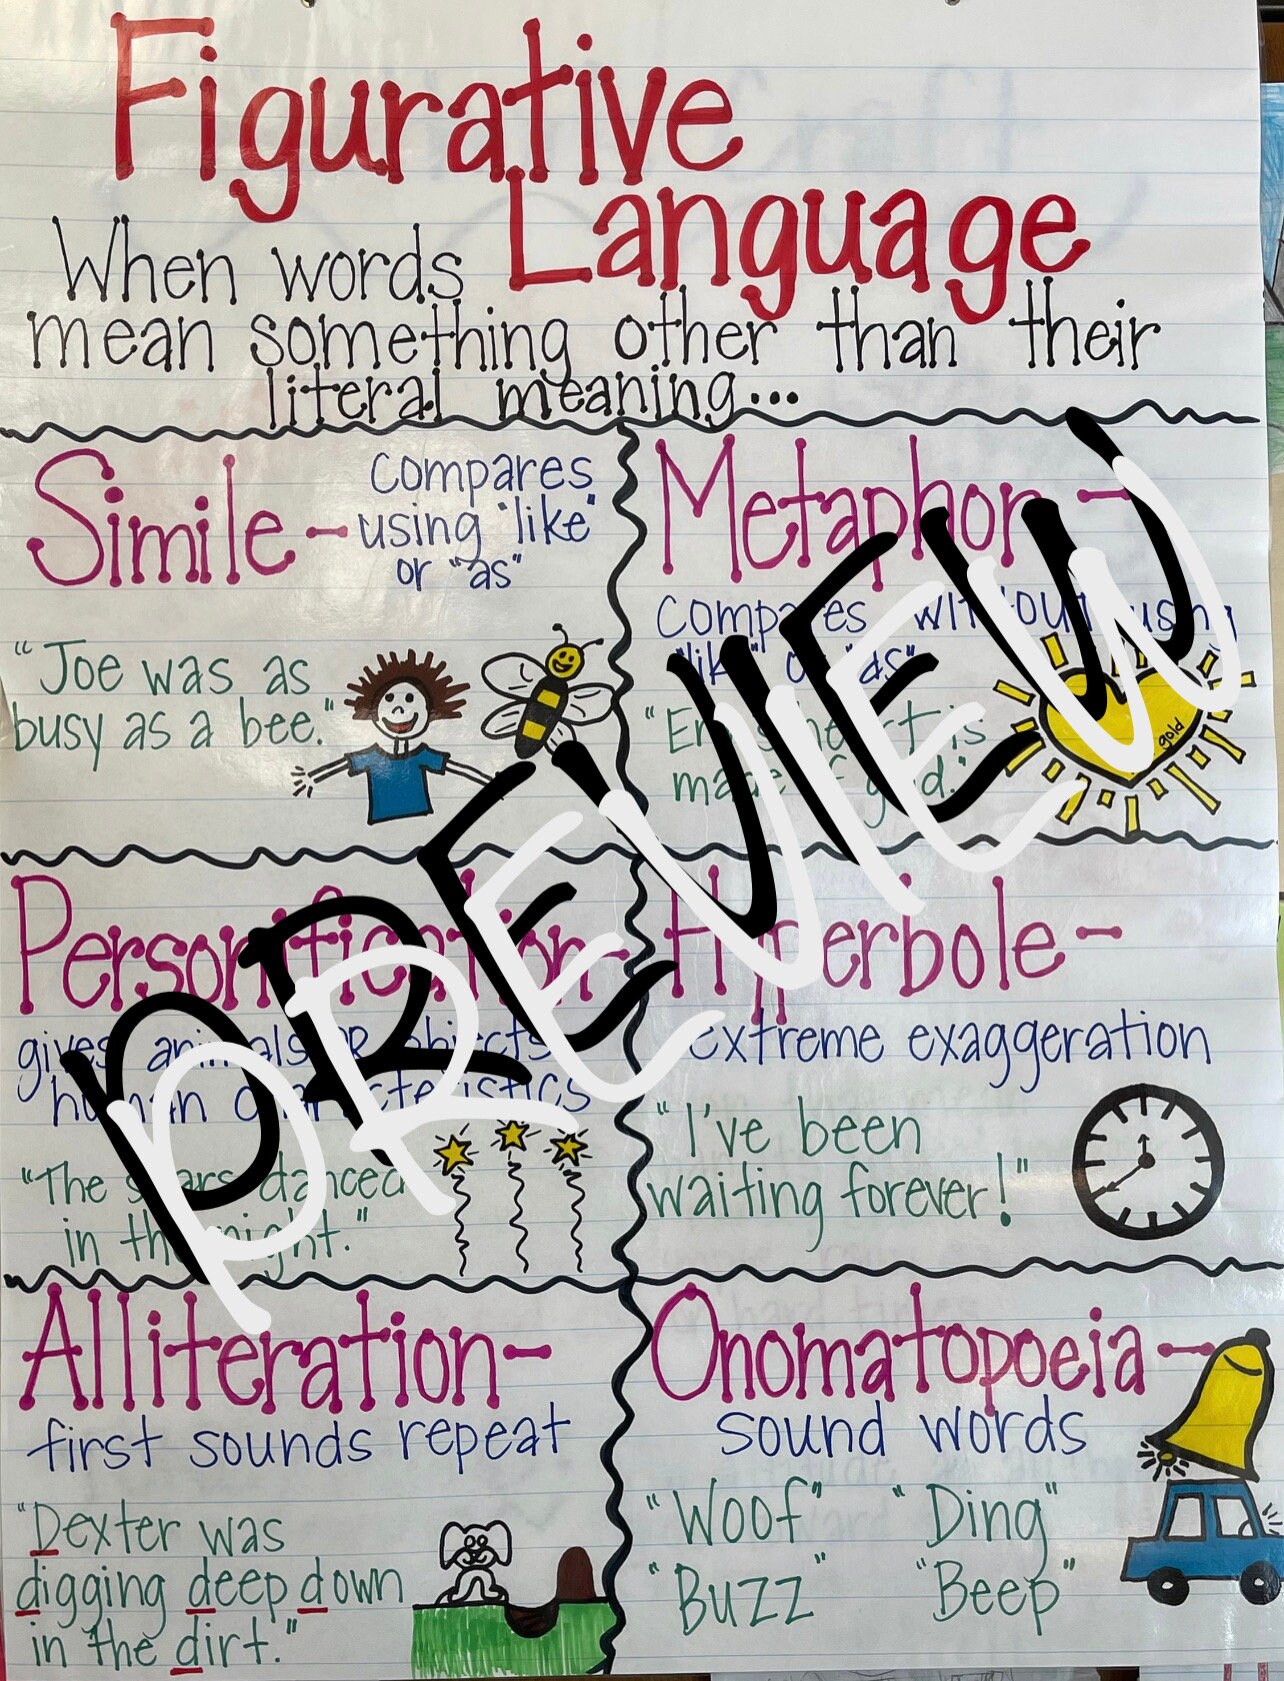 Figurative
Language
When words
mean something other than their
literal meaning...
Simile -
compares
using "like"
or "as"
"Joe was as
busy as a bee."
Metaphor -
compares without using
"like" or "as"
heart is
made of gold."
gold
Personification -
gives animals or objects
human characteristics
"The stars danced
in the night."
Hyperbole -
extreme exaggeration
"I've been
waiting forever!"
Alliteration -
first sounds repeat
"Dexter was
digging deep down
in the dirt."
Onomatopoeia -
sound words
"Woof" "Ding"
"Buzz" "Beep"
PREVIEW